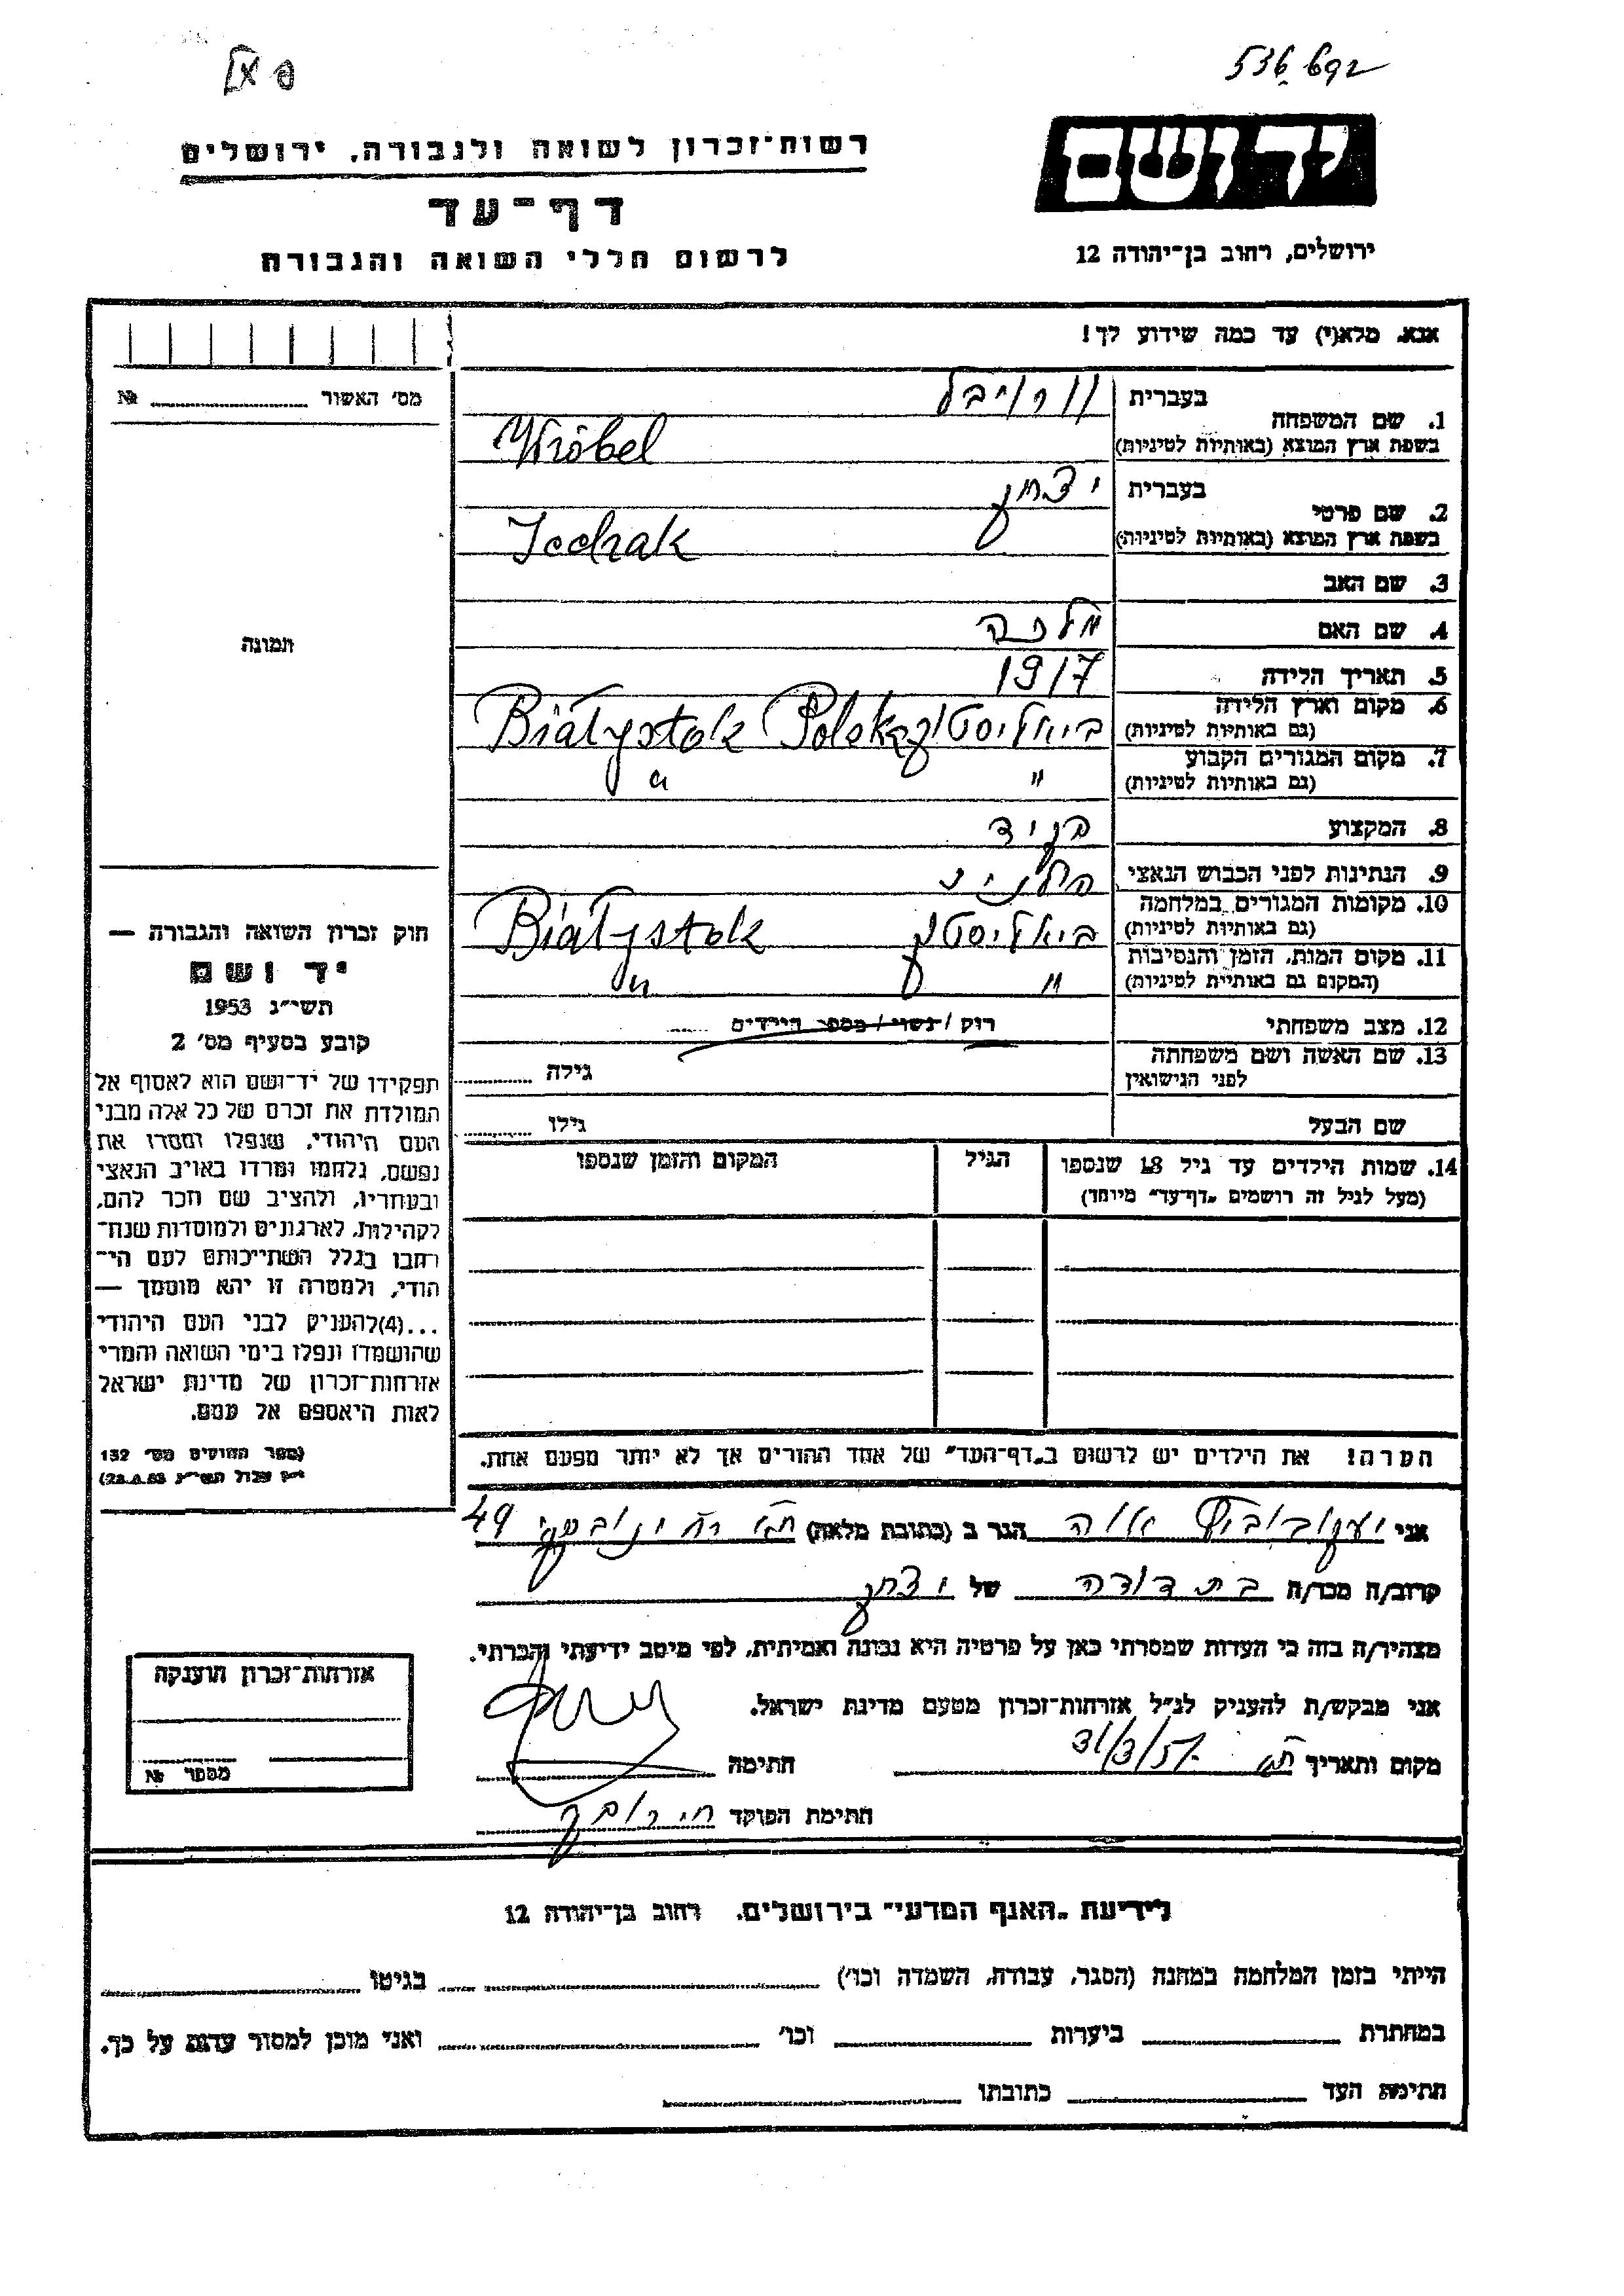 536692
רשות־זכרון לשואה ולגבורה, ירושלים
יד ושם
דף־עד
לרשום חללי השואה והגבורה
ירושלים, רחוב בן־יהודה 12
אנא, מלא(י) עד כמה שידוע לך!
מס׳ האשור ........ №
1. שם המשפחה
בעברית וורויבל
בשפת ארץ המוצא (באותיות לטיניות) Wróbel
2. שם פרטי
בעברית יצחק
בשפת ארץ המוצא (באותיות לטיניות) Icchak
3. שם האב
4. שם האם מלכה
תמונה
5. תאריך הלידה 1917
6. מקום וארץ הלידה ביאליסטוק Białystok Polska
(גם באותיות לטיניות)
7. מקום המגורים הקבוע " "
(גם באותיות לטיניות)
8. המקצוע פקיד
9. הנתינות לפני הכבוש הנאצי פולנית
10. מקומות המגורים במלחמה ביאליסטוק Białystok
(גם באותיות לטיניות)
11. מקום המות, הזמן והנסיבות " "
(המקום גם באותיות לטיניות)
12. מצב משפחתי רווק / נשוי / מספר הילדים ......
13. שם האשה ושם משפחתה
לפני הנישואין גילה ........
שם הבעל גילו ........
14. שמות הילדים עד גיל 18 שנספו הגיל המקום והזמן שנספו
(מעל לגיל זה רושמים „דף־עד" מיוחד)
חוק זכרון השואה והגבורה —
יד ושם
תשי״ג 1953
קובע בסעיף מס׳ 2
תפקידו של יד־ושם הוא לאסוף אל
המולדת את זכרם של כל אלה מבני
העם היהודי, שנפלו ומסרו את
נפשם, נלחמו ומרדו באויב הנאצי
ובעוזריו, ולהציב שם וזכר להם,
לקהילות, לארגונים ולמוסדות שנח־
רבו בגלל השתייכותם לעם הי־
הודי, ולמטרה זו יהא מוסמך —
...(4)להעניק לבני העם היהודי
שהושמדו ונפלו בימי השואה והמרי
אזרחות־זכרון של מדינת ישראל
לאות היאספם אל עמם.
(ספר החוקים מס׳ 132
הערה! את הילדים יש לרשום ב„דף־העד" של אחד ההורים אך לא יותר מפעם אחת.
אני יעקובוביץ הגר ב (כתובת מלאה) 49
קרוב/ה מכר/ה בת דודה של יצחק
מצהיר/ה בזה כי העדות שמסרתי כאן על פרטיה היא נכונה ואמיתית, לפי מיטב ידיעתי והכרתי.
אני מבקש/ת להעניק לנ״ל אזרחות־זכרון מטעם מדינת ישראל.
מקום ותאריך חתימה
חתימת הפוקד
אזרחות־זכרון הוענקה
מספר №
לידיעת „האגף המדעי" בירושלים, רחוב בן־יהודה 12
הייתי בזמן המלחמה במחנה (הסגר, עבודת, השמדה וכו׳) בגיטו
במחתרת ביערות וכו׳ ואני מוכן למסור עדות על כך.
חתימת העד כתובתו